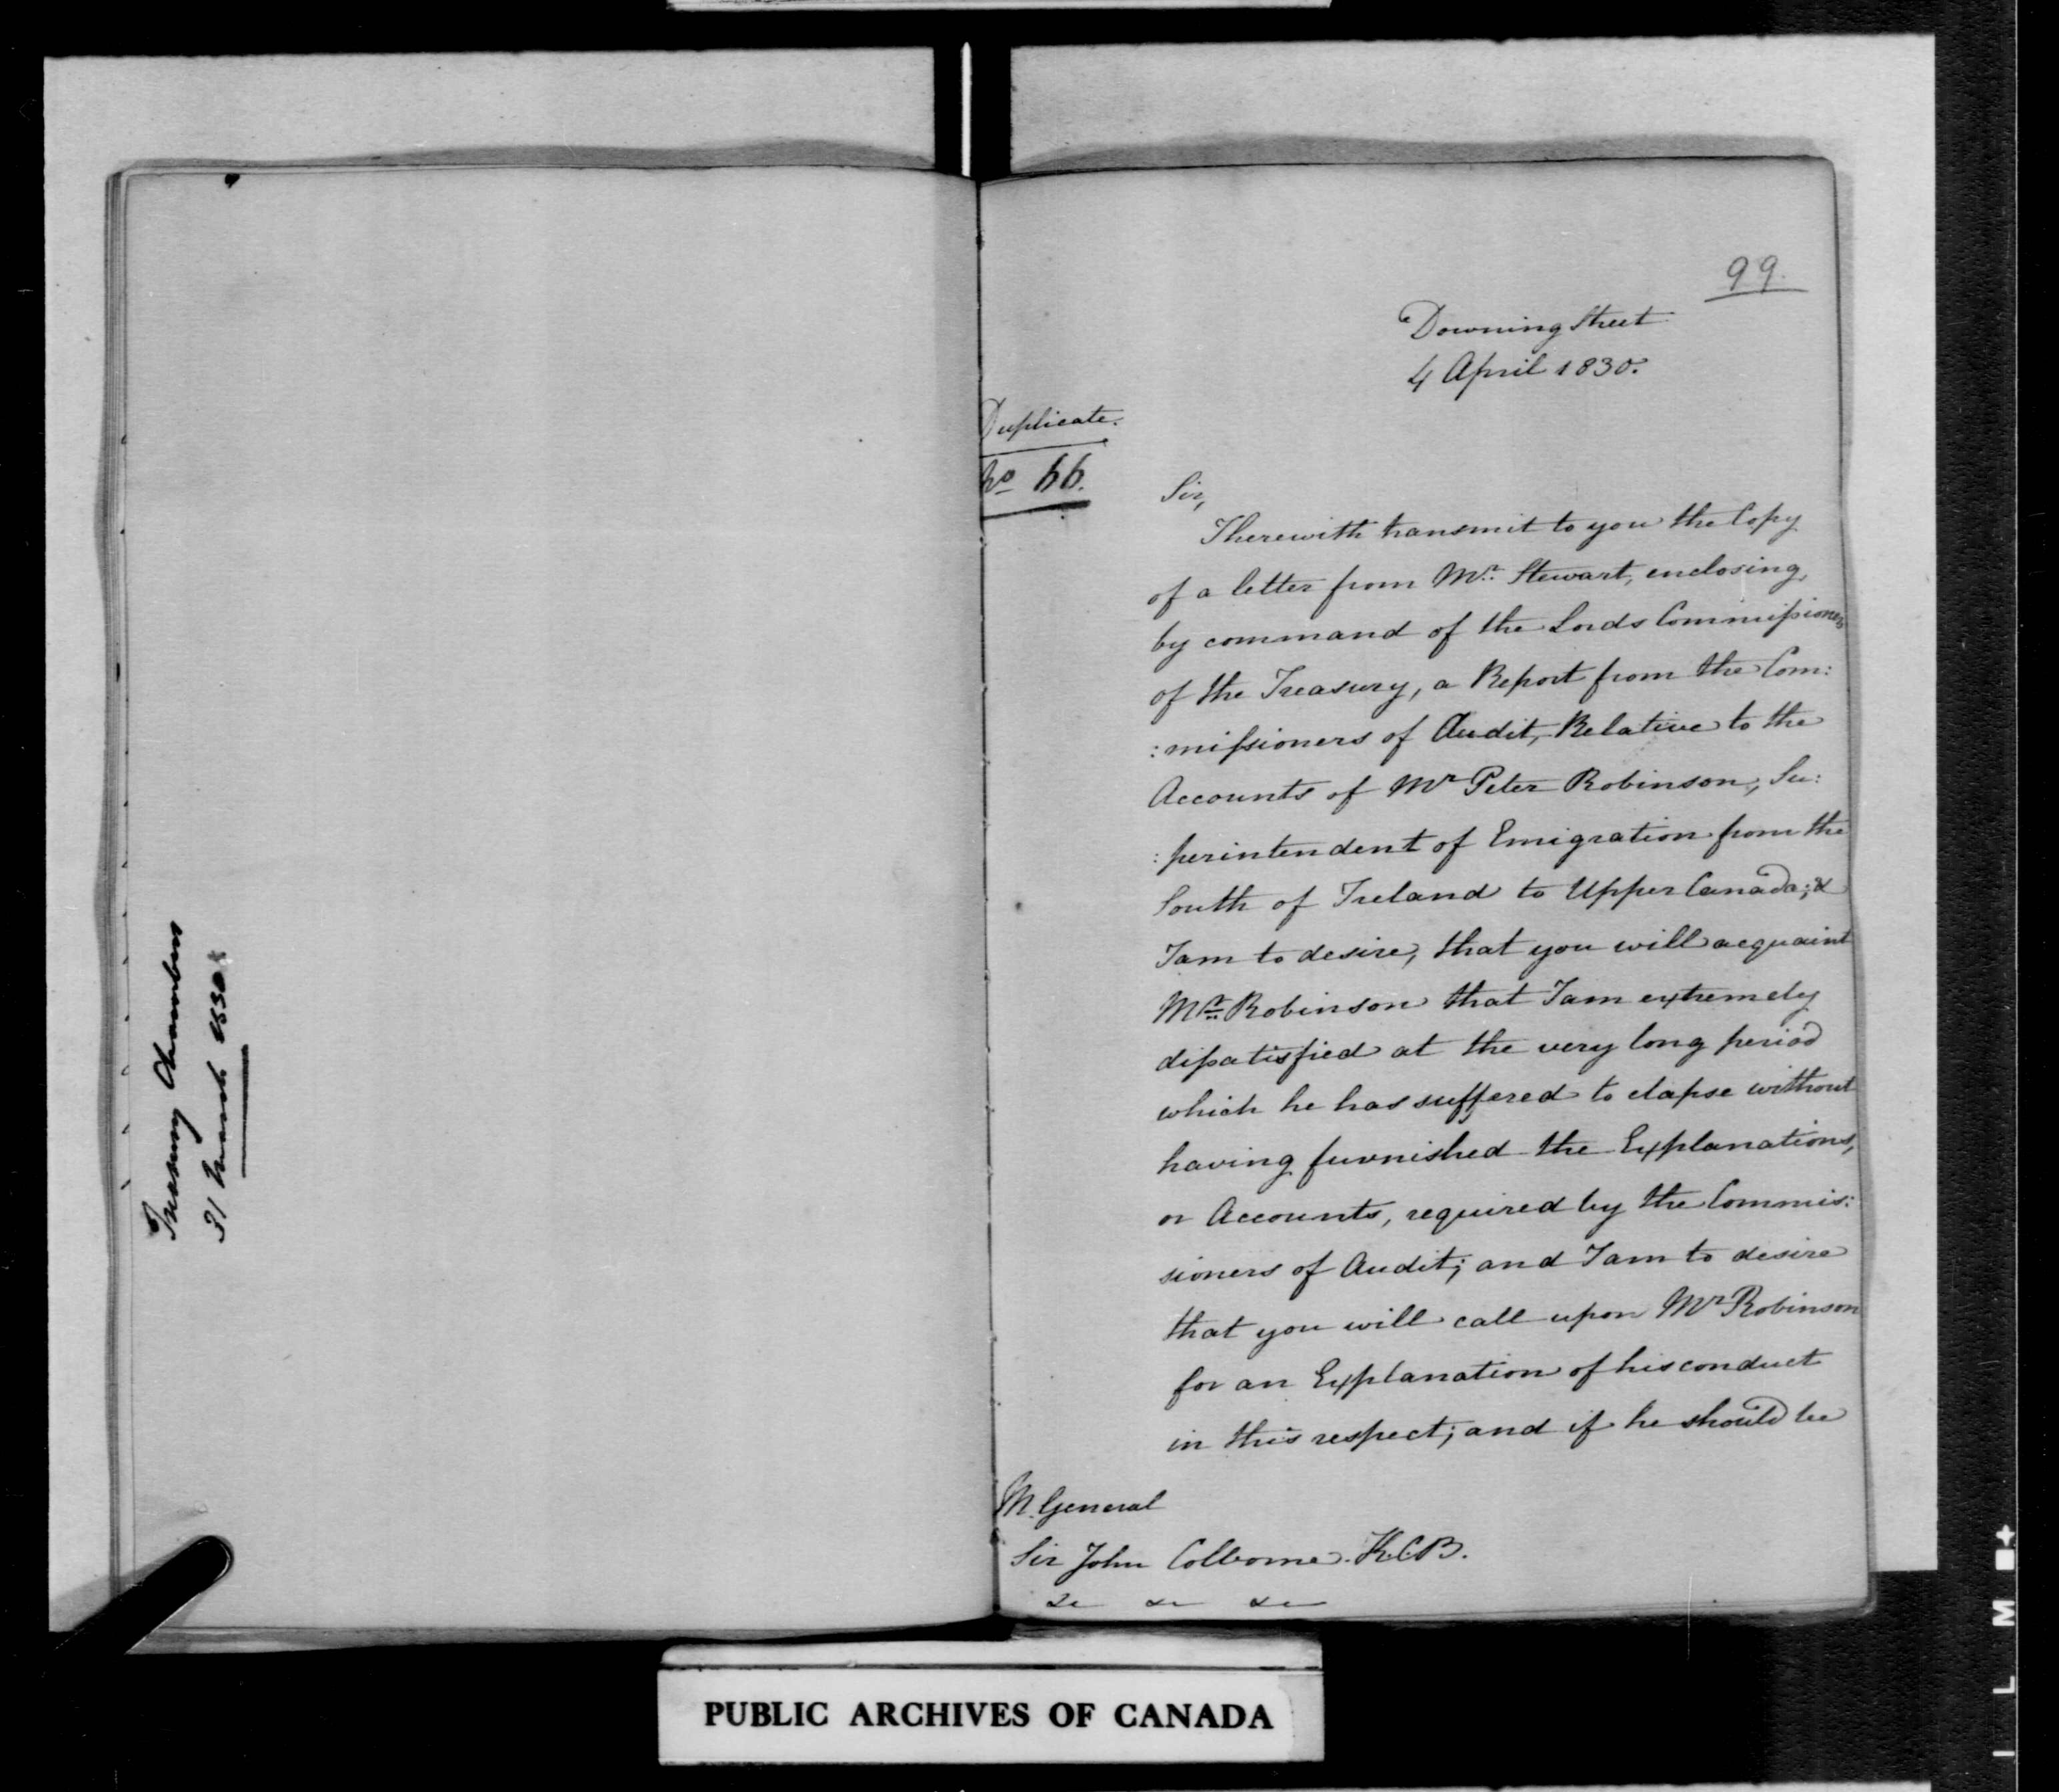 Treasury Chambers
31 March 1830
99.
Downing Street
4 April 1830.
Duplicate.
No 66.
Sir,
I herewith transmit to you the Copy
of a letter from Mr. Stewart, enclosing,
by command of the Lords Commissioners
of the Treasury, a Report from the Com:
:missioners of Audit, Relative to the
Accounts of Mr Peter Robinson, Su:
:perintendent of Emigration from the
South of Ireland to Upper Canada; &
I am to desire, that you will acquaint
Mr. Robinson that I am extremely
dissatisfied at the very long period
which he has suffered to elapse without
having furnished the Explanations,
or Accounts, required by the Commis:
sioners of Audit; and I am to desire
that you will call upon Mr Robinson
for an Explanation of his conduct
in this respect; and if he should be
M. General
Sir John Colborne. K.C.B.
&c &c &c
PUBLIC ARCHIVES OF CANADA